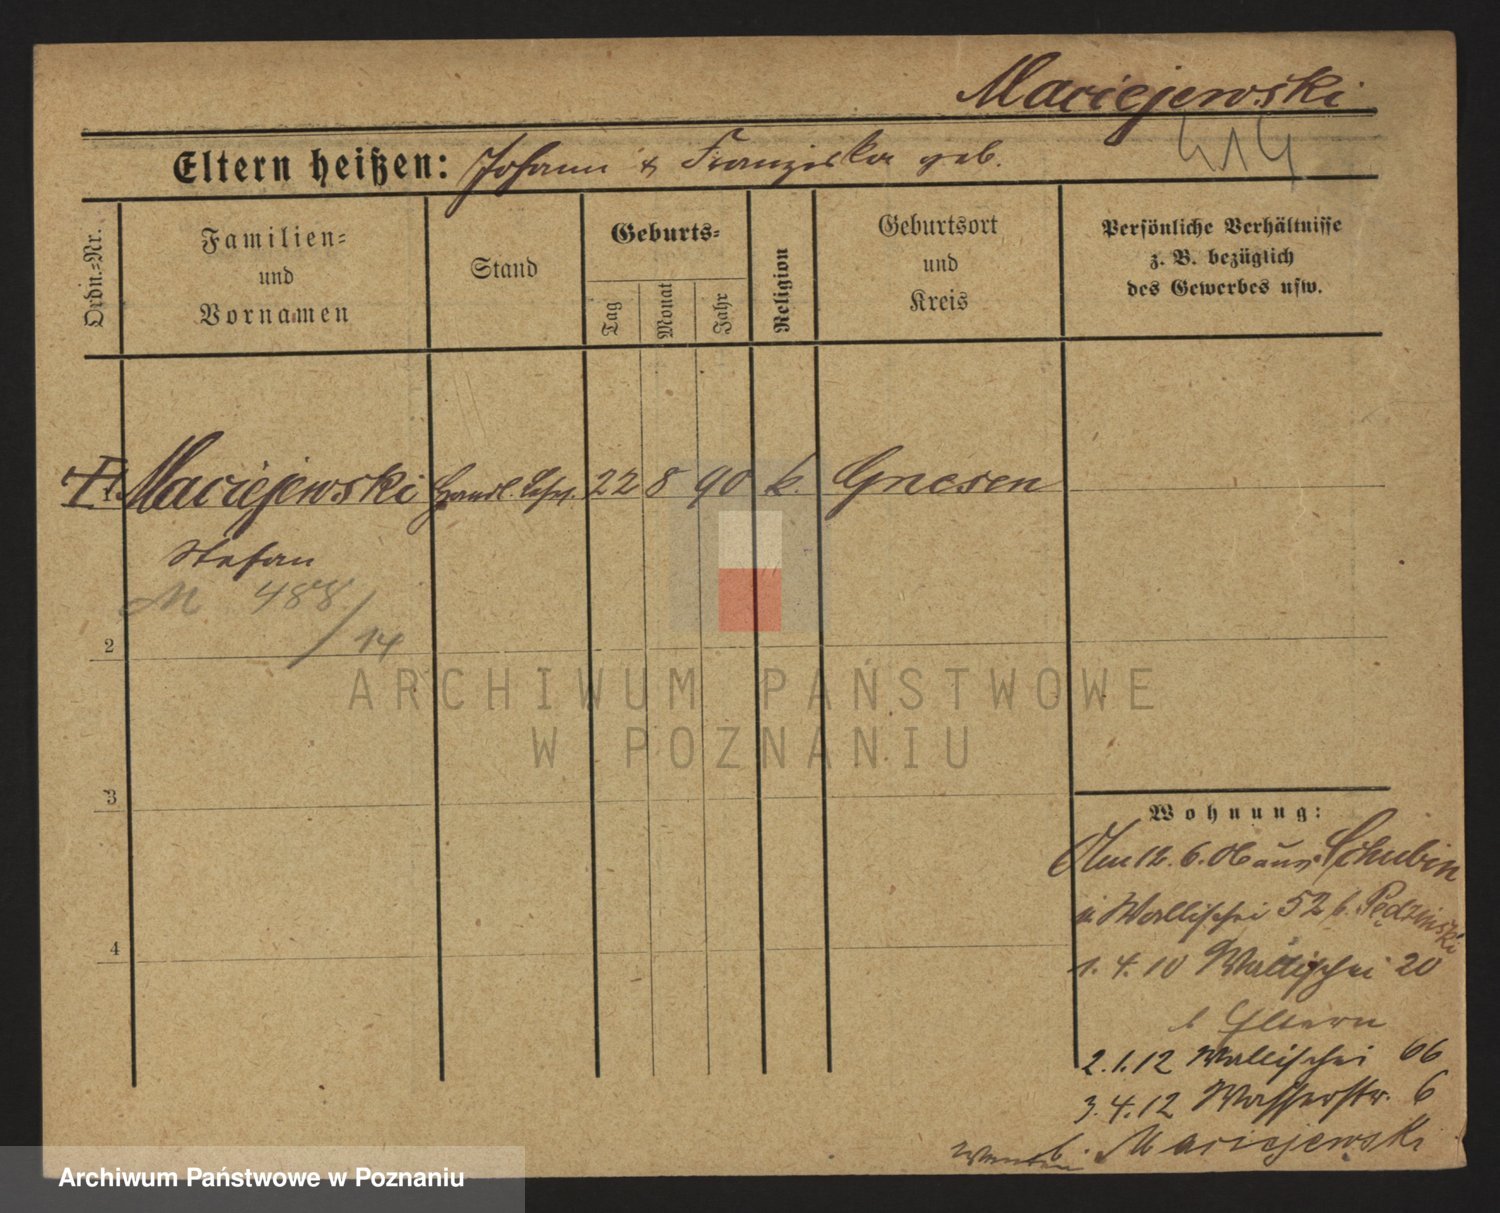 Maciejewski
Eltern heißen: Johann & Franziska geb.
Ordn.-Nr.
Familien-
und
Vornamen
Stand
Geburts-
Tag
Monat
Jahr
Religion
Geburtsort
und
Kreis
Persönliche Verhältnisse
z. B. bezüglich
des Gewerbes usw.
1. Maciejewski Handl. Lehrl. 22 8 90 k. Gnesen
Stefan
M 488/14
2
3
4
Wohnung:
Am 12. 6. 06 aus Schubin
Wallischei 52 b. Pędzinski
1. 4. 10 Wallischei 20
b Eltern
2. 1. 12 Wallischei 66
3. 4. 12 Wasserstr. 6
b. Maciejewski
ARCHIWUM PAŃSTWOWE
W POZNANIU
Archiwum Państwowe w Poznaniu